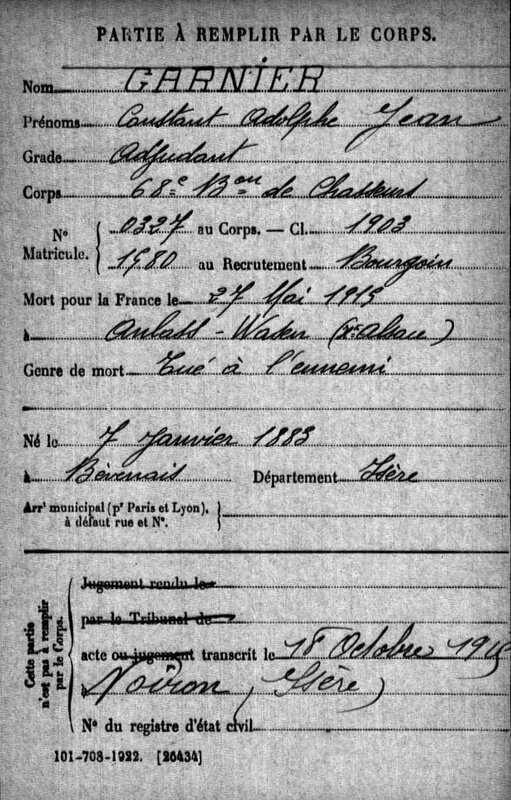 PARTIE À REMPLIR PAR LE CORPS.
Nom GARNIER
Prénoms Constant Adolphe Jean
Grade Adjudant
Corps 68e Bon de Chasseurs
N° Matricule. { 0327 au Corps. — Cl. 1903
1580 au Recrutement Bourgoin
Mort pour la France le 27 Mai 1915
à Anlass-Wasen (Hte Alsace)
Genre de mort Tué à l'ennemi
Né le 7 Janvier 1883
à Bévenais Département Isère
Arrt municipal (pr Paris et Lyon), }
à défaut rue et N°.
Cette partie n'est pas à remplir par le Corps. {
Jugement rendu le
par le Tribunal de
acte ou jugement transcrit le 18 Octobre 1915
à Voiron (Isère)
N° du registre d'état civil
101-708-1922. [26434]